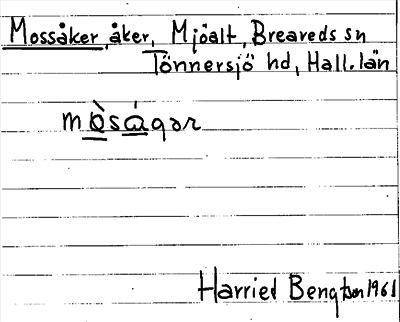 Mossåker, åker, Mjöalt, Breareds sn
Tönnersjö hd, Hall. län
mòsågər
Harried Bengtson 1961